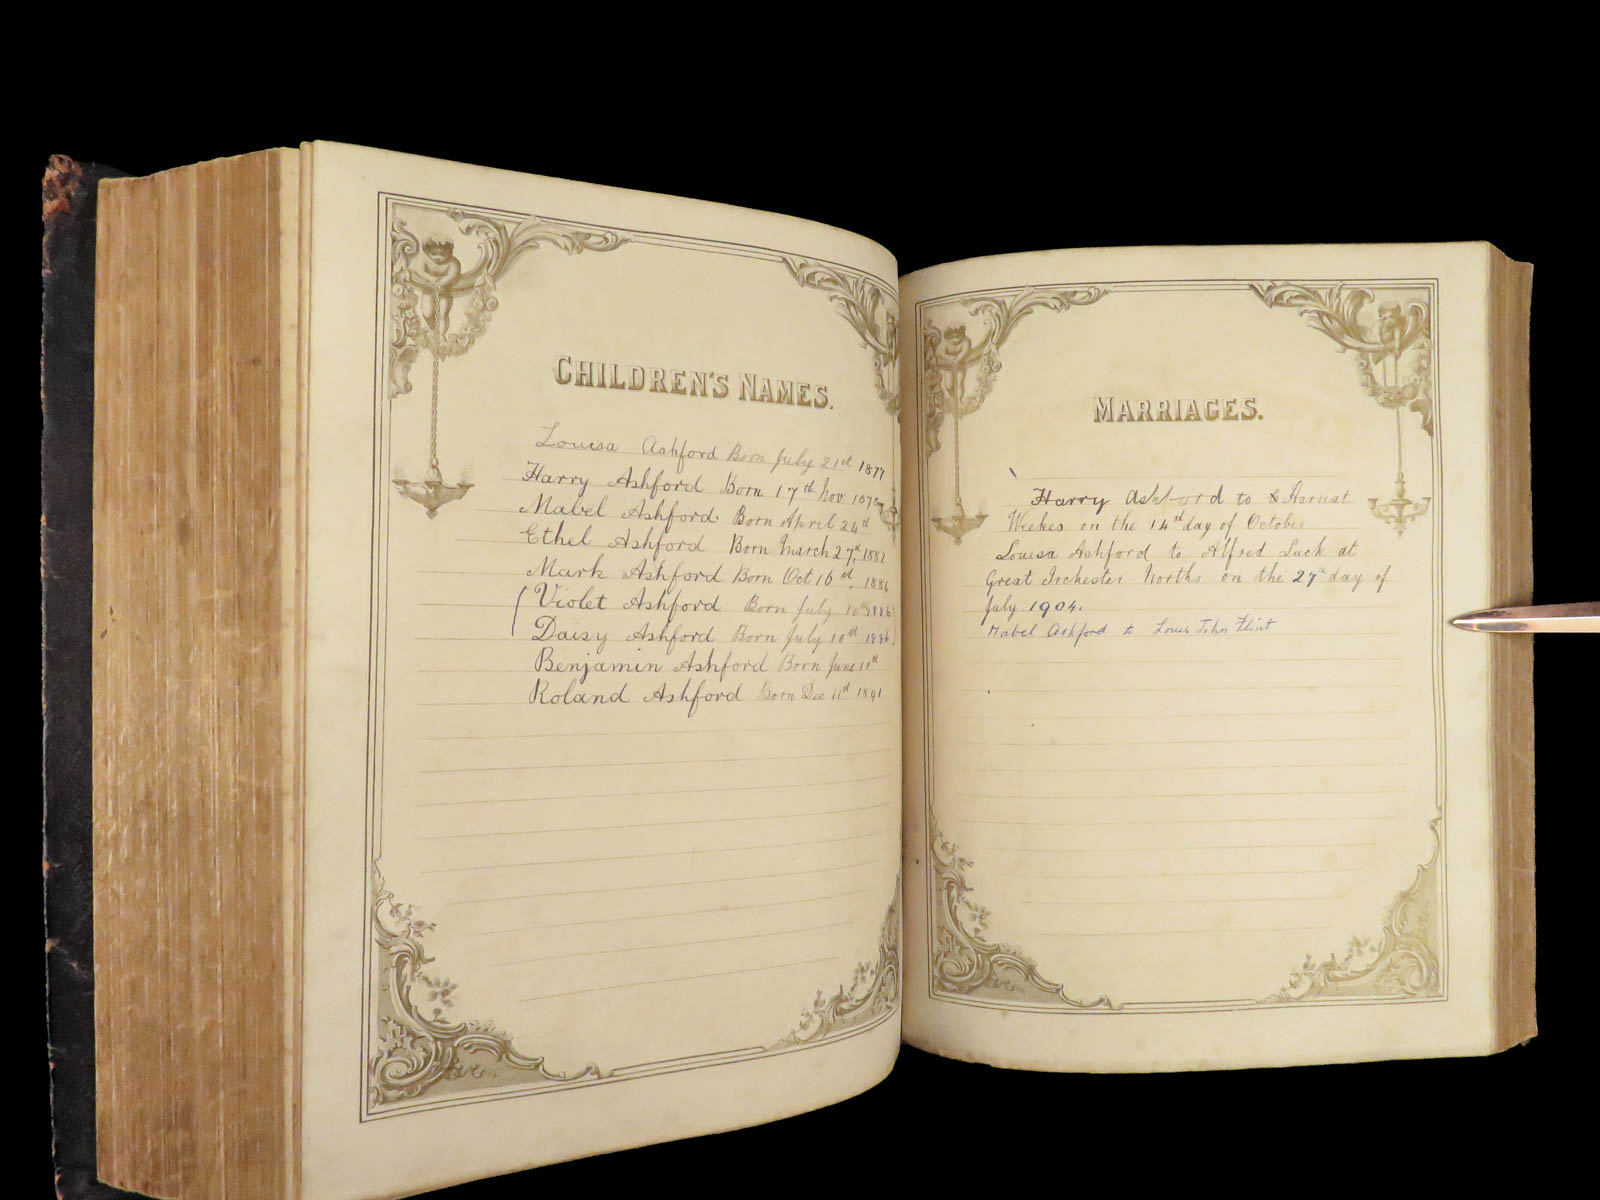 CHILDREN'S NAMES.
Louisa Ashford Born July 21st 1877
Harry Ashford Born 17th Nov
Mabel Ashford Born April 24st
Ethel Ashford Born March 27st, 1882
Mark Ashford Born Oct 16st, 1884
Violet Ashford Born July 10th 1886
Daisy Ashford Born July 10st 1886
Benjamin Ashford Born June 10st
Roland Ashford Born Dec 11st 1891
MARRIAGES.
Harry Ashford to Harriat
Weekes on the 14st day of October
Louisa Ashford to Alfred Luck at
Great Irchester Norths on the 27st day of
July 1904.
Mabel Ashford to Louis John Flint